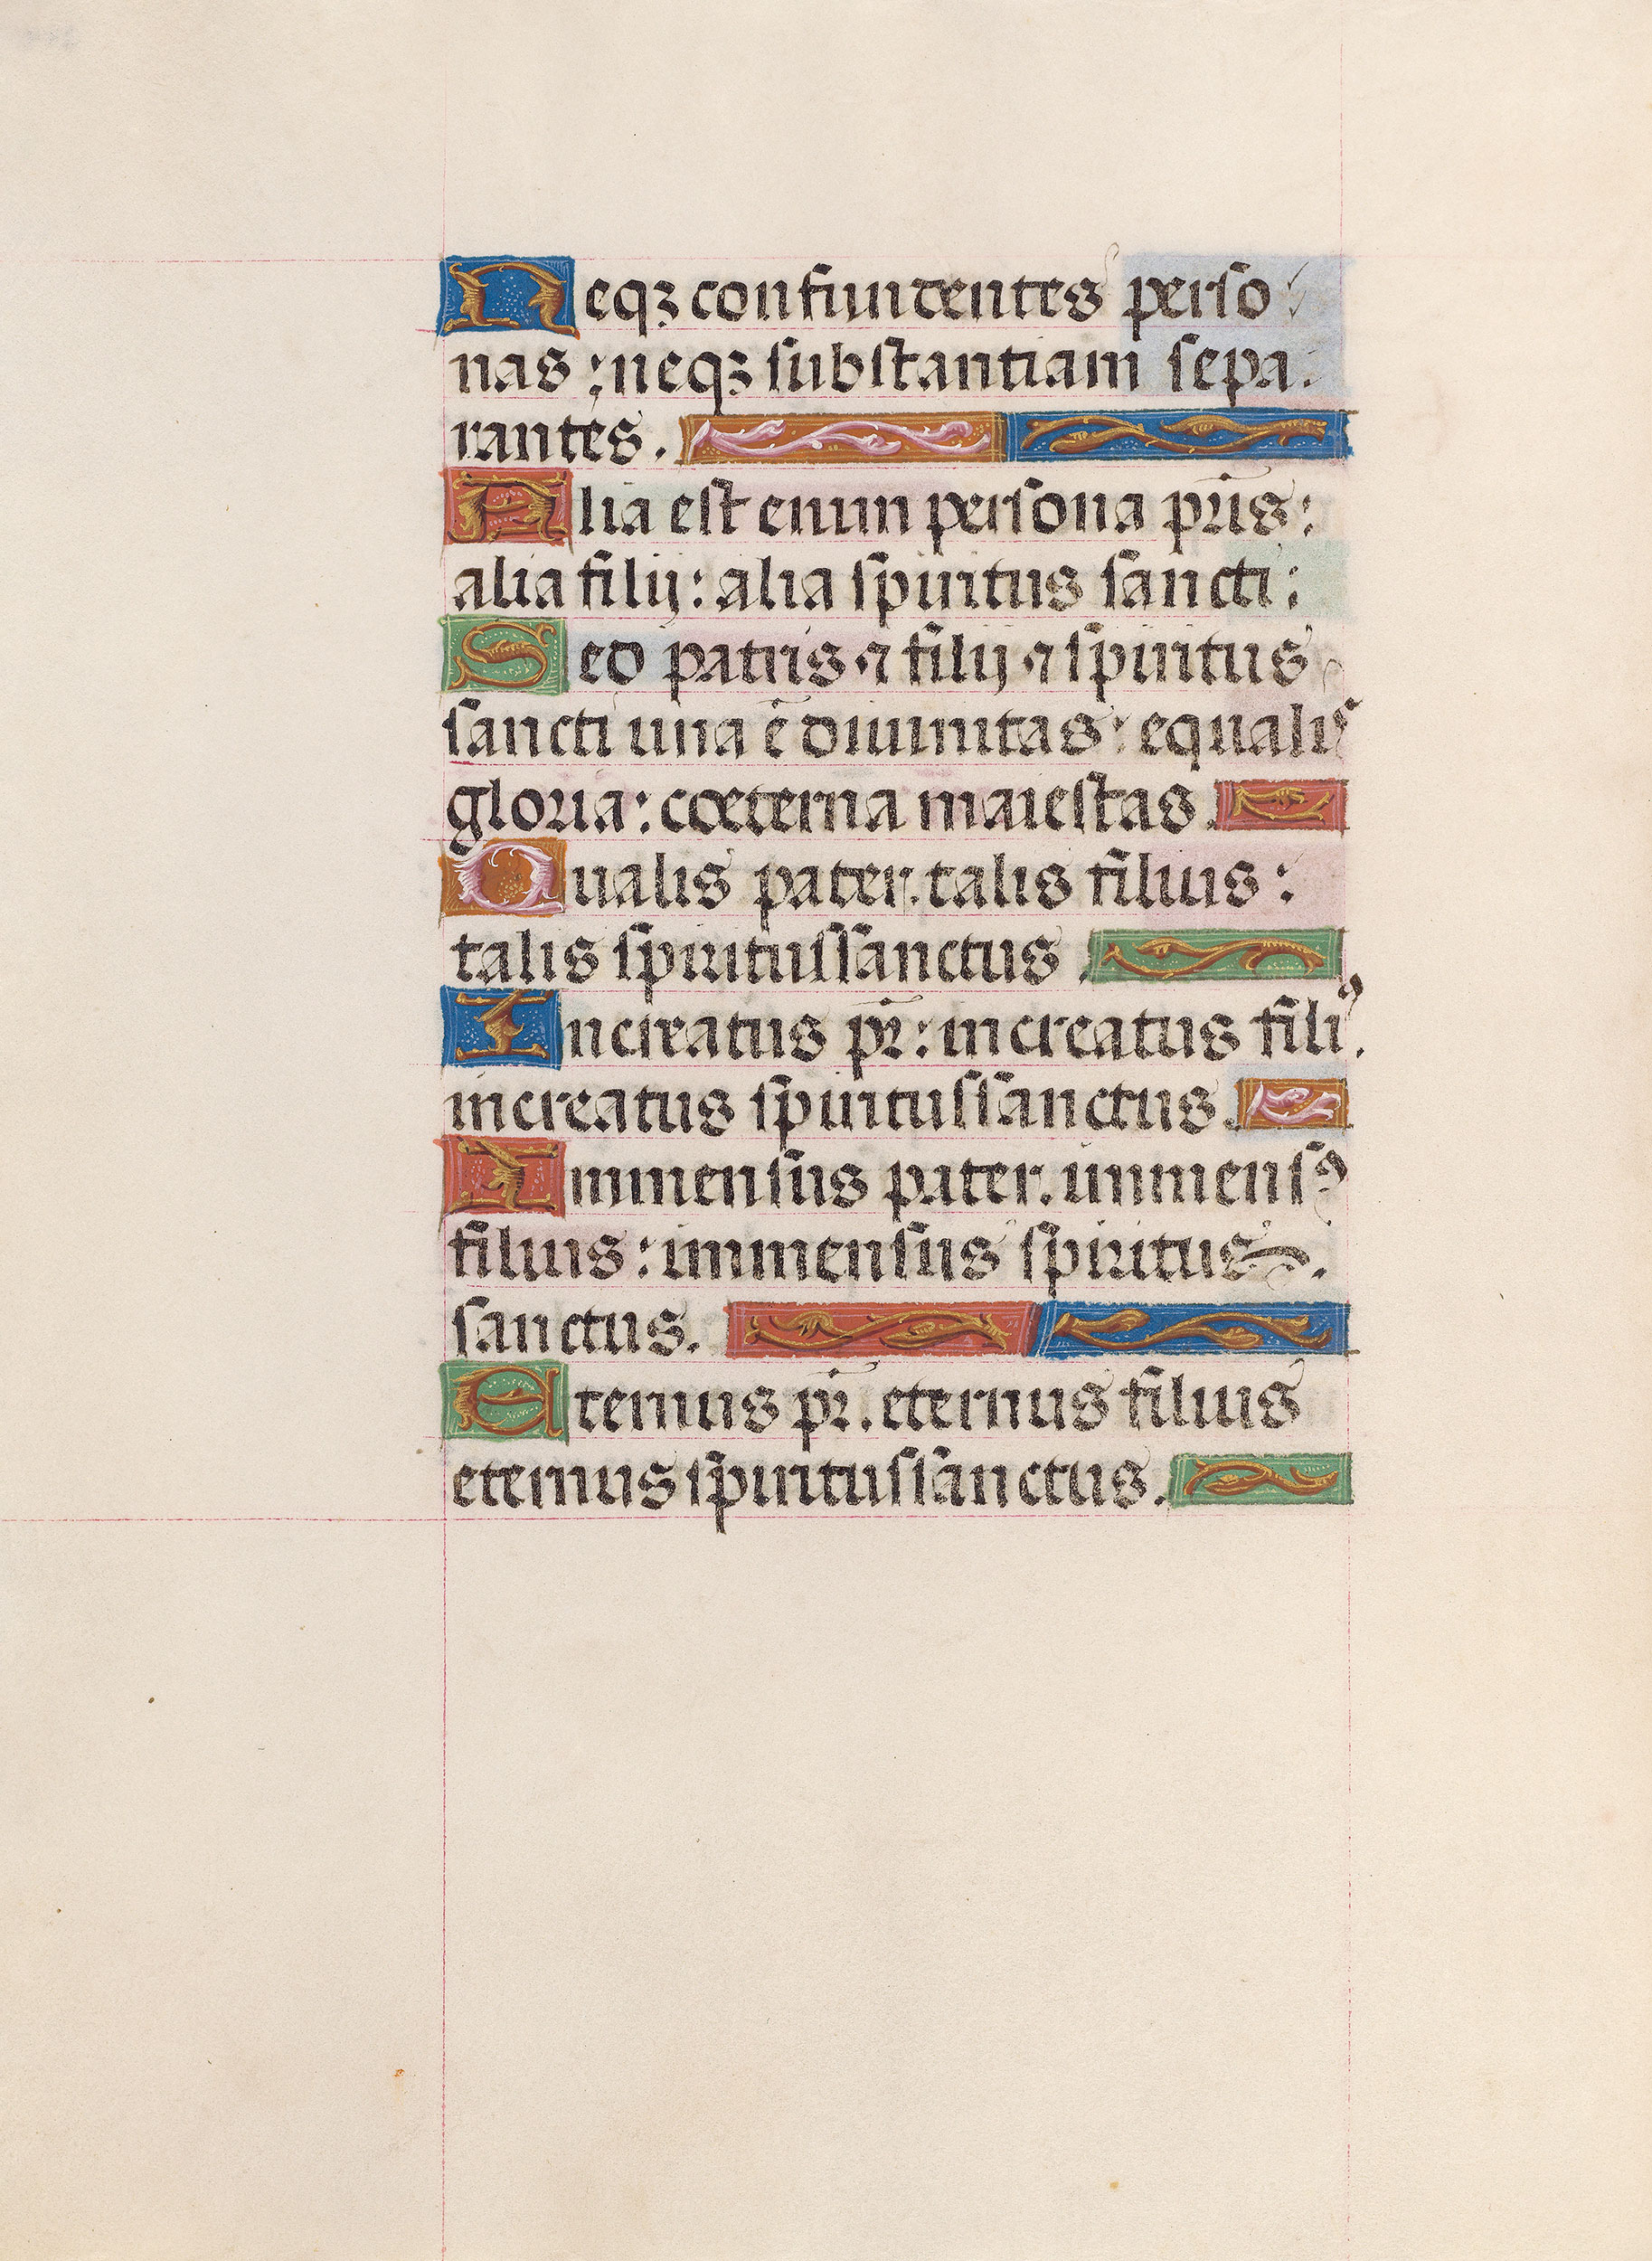 Neqꝫ confundentes perso
nas : neqꝫ substantiam sepa.
rantes.
Alia est enim persona pr̄is :
alia filij : alia spiritus sancti :
Sed patris ⁊ filij ⁊ spiritus
sancti una ē diuinitas : equalis
gloria : coeterna maiestas.
Qualis pater. talis filius :
talis spiritussanctus.
Increatus pr̄ : increatus filiꝰ.
increatus spiritussanctus.
Immensus pater. immensꝰ
filius : immensus spiritus.
sanctus.
Eternus pr̄. eternus filius
eternus spiritussanctus.